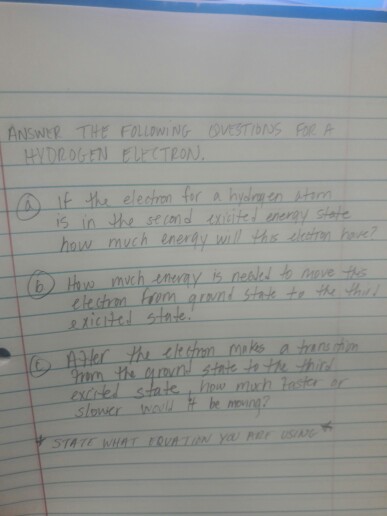 ANSWER THE FOLLOWING QUESTIONS FOR A
HYDROGEN ELECTRON.
(a) If the electron for a hydrogen atom
is in the second exisited energy state
how much energy will this electron have?
(b) How much energy is needed to move this
electron from ground state to the third
exicited state.
(c) After the electron makes a transition
from the ground state to the third
excited state, how much faster or
slower would it be moving?
* STATE WHAT EQUATION YOU ARE USING *